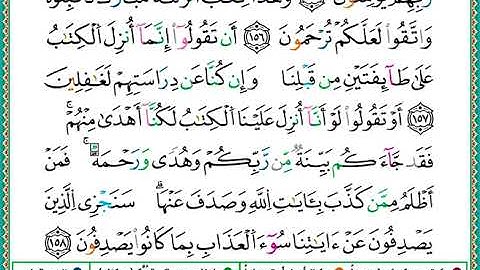 وَاتَّقُوا۟ لَعَلَّكُمْ تُرْحَمُونَ ﴿١٥٦﴾ أَن تَقُولُوٓا۟ إِنَّمَآ أُنزِلَ الْكِتَٰبُ
عَلَىٰ طَآئِفَتَيْنِ مِن قَبْلِنَا وَإِن كُنَّا عَن دِرَاسَتِهِمْ لَغَٰفِلِينَ
﴿١٥٧﴾ أَوْ تَقُولُوا۟ لَوْ أَنَّآ أُنزِلَ عَلَيْنَا الْكِتَٰبُ لَكُنَّآ أَهْدَىٰ مِنْهُمْ ۚ
فَقَدْ جَآءَكُم بَيِّنَةٌ مِّن رَّبِّكُمْ وَهُدًى وَرَحْمَةٌ ۚ فَمَنْ
أَظْلَمُ مِمَّن كَذَّبَ بِـَٔايَٰتِ اللَّهِ وَصَدَفَ عَنْهَا ۗ سَنَجْزِى الَّذِينَ
يَصْدِفُونَ عَنْ ءَايَٰتِنَا سُوٓءَ الْعَذَابِ بِمَا كَانُوا۟ يَصْدِفُونَ ﴿١٥٨﴾